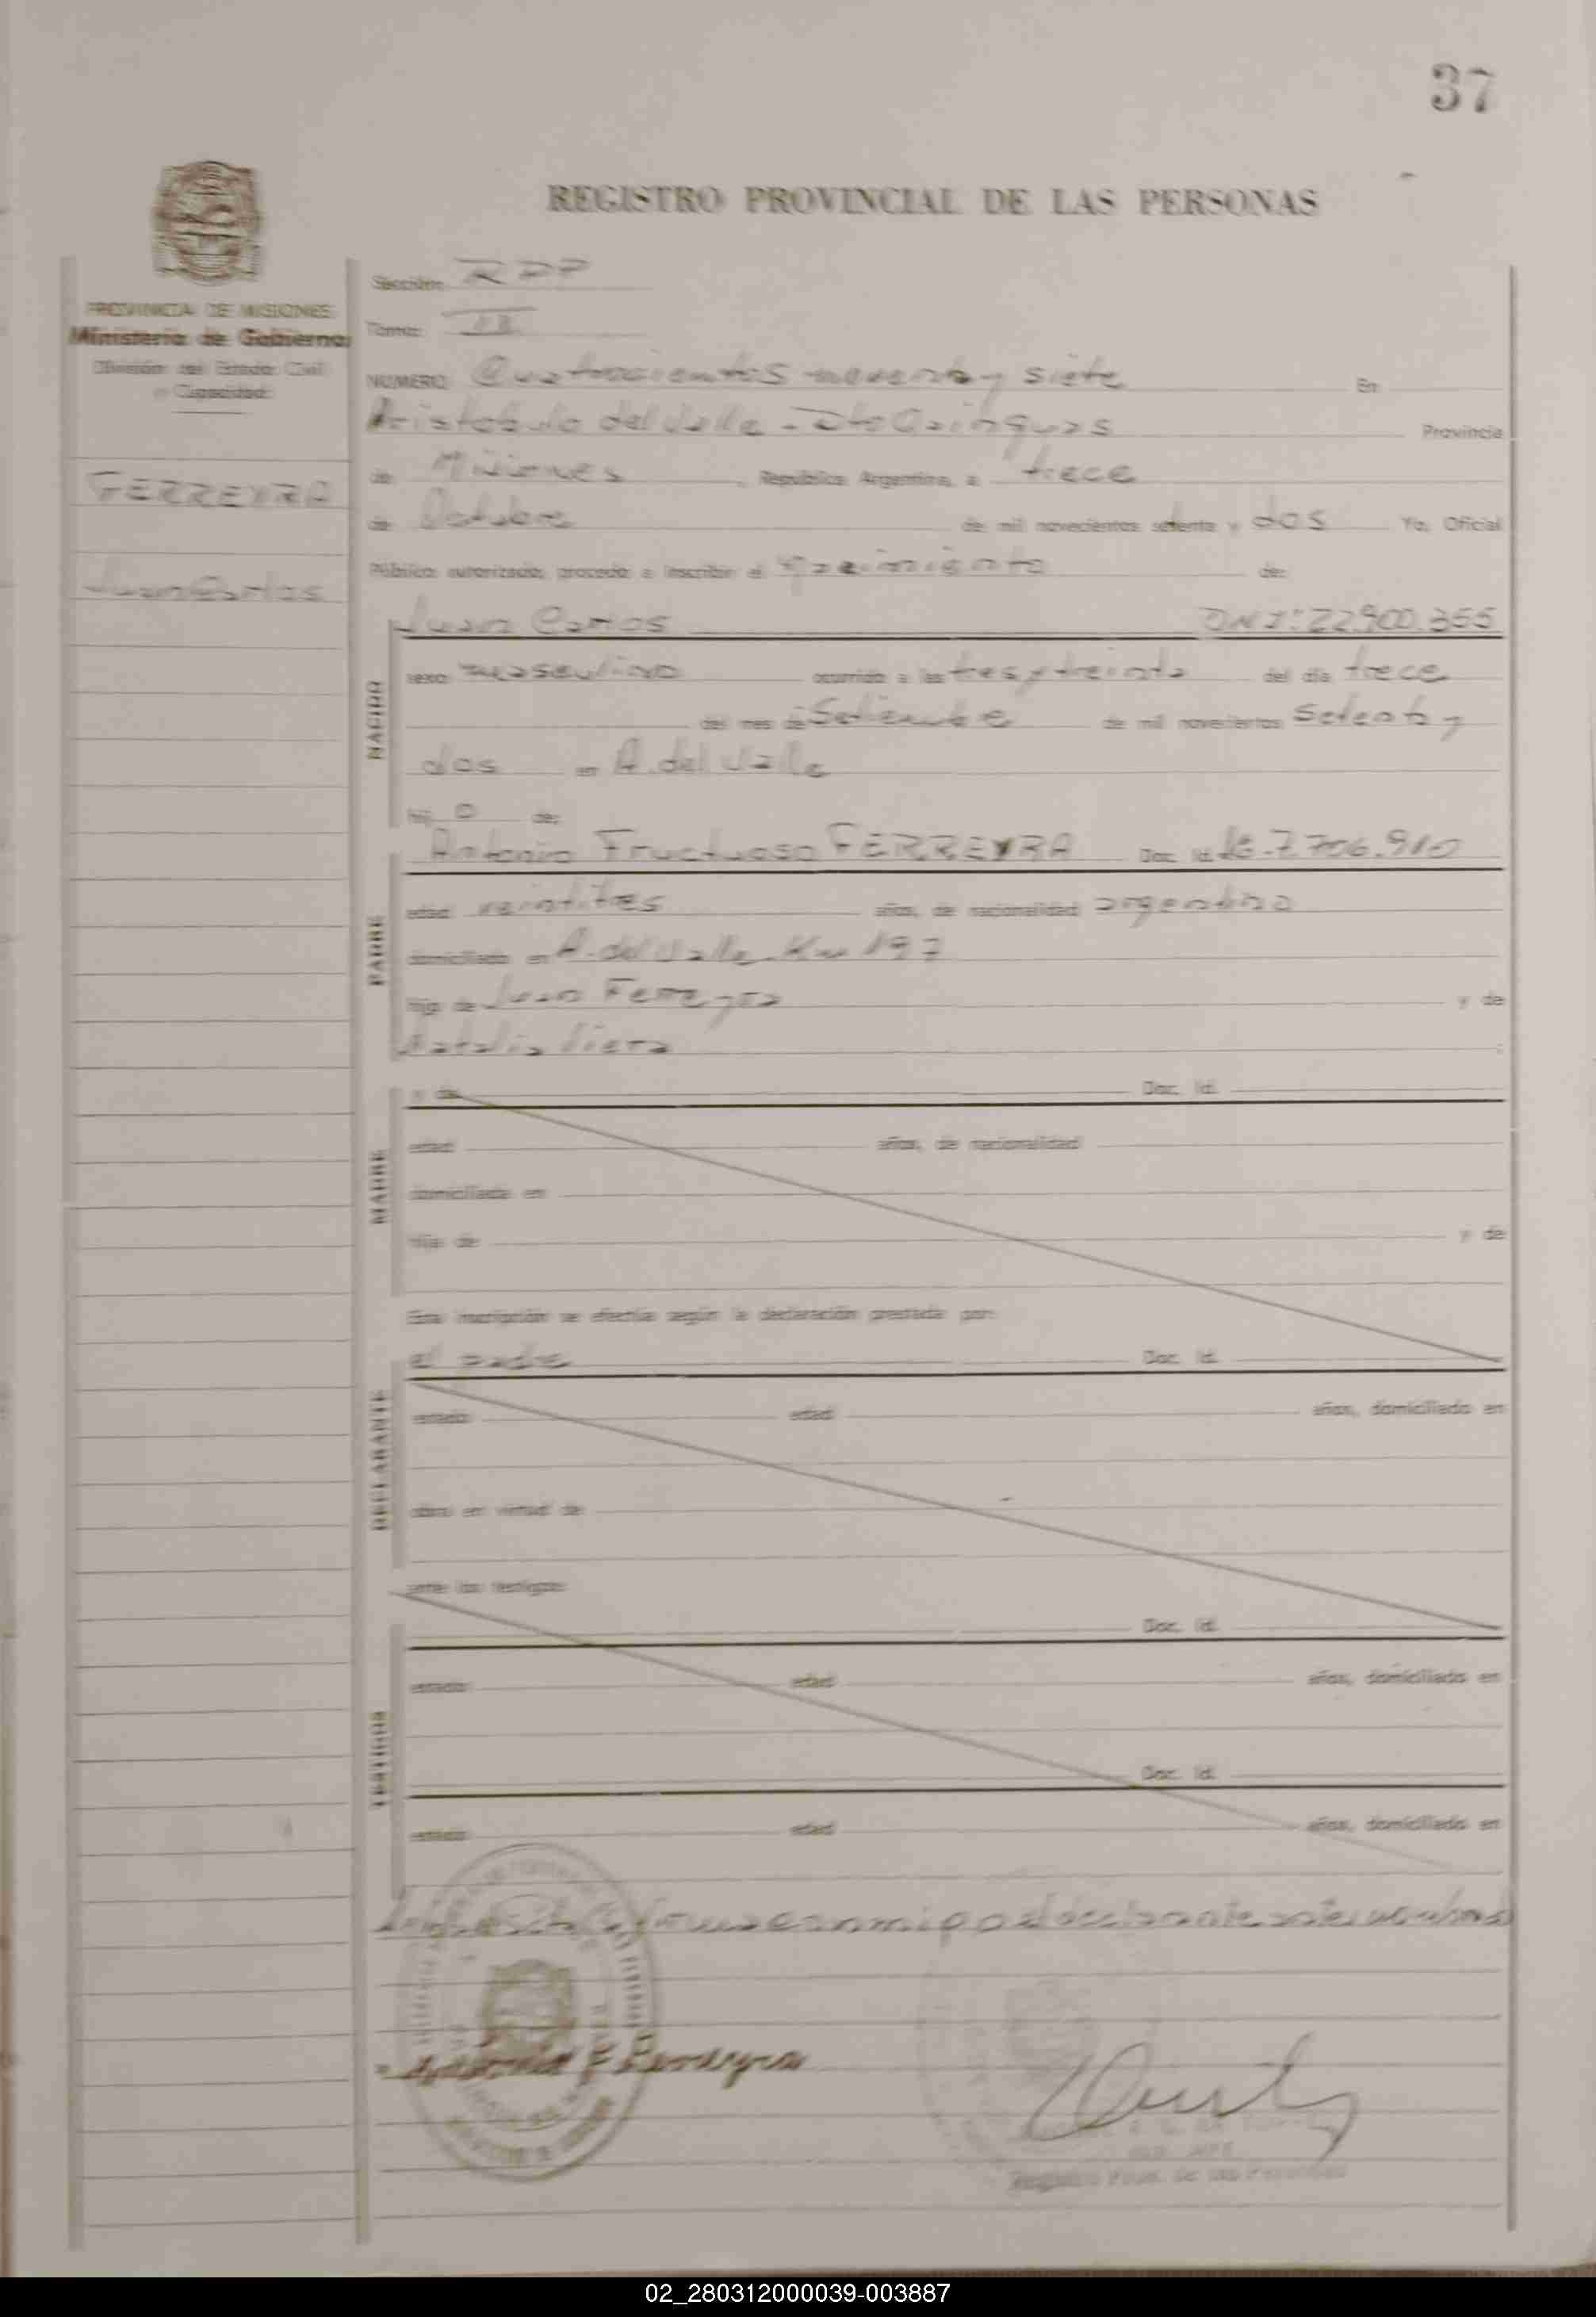 37
REGISTRO PROVINCIAL DE LAS PERSONAS
PROVINCIA DE MISIONES
Ministerio de Gobierno
División del Estado Civil
y Capacidad
FERREYRA
Juan Carlos
Sección RPP
Tomo III
NUMERO Cuatrocientos noventa y siete En
Aristobulo del Valle - Dto Cainguas Provincia
de Misiones, República Argentina, a trece
de Octubre de mil novecientos setenta y dos Yo, Oficial
Público autorizado, procedo a inscribir el Nacimiento de:
Juan Carlos DNI: 22.900.355
NACIDO
sexo masculino ocurrido a las tres y treinta del día trece
del mes de Setiembre de mil novecientos Setenta y
dos en A. del Valle
hijo de:
Antonio Fructuoso FERREYRA Doc. Id. 7.706.910
PADRE
edad veintitres años, de nacionalidad argentina
domiciliado en A. del Valle Km 197
hijo de Juan Ferreyra y de
Natalia Viera
y de Doc. Id.
MADRE
edad años, de nacionalidad
domiciliada en
hija de y de
Esta inscripción se efectúa según la declaración prestada por:
el padre Doc. Id.
DECLARANTE
estado edad años, domiciliado en
obra en virtud de
ante los testigos
Doc. Id.
TESTIGOS
estado edad años, domiciliado en
Doc. Id.
estado edad años, domiciliado en
firma conmigo el declarante
Antonio F Ferreyra
Registro Prov. de las Personas
02_280312000039-003887